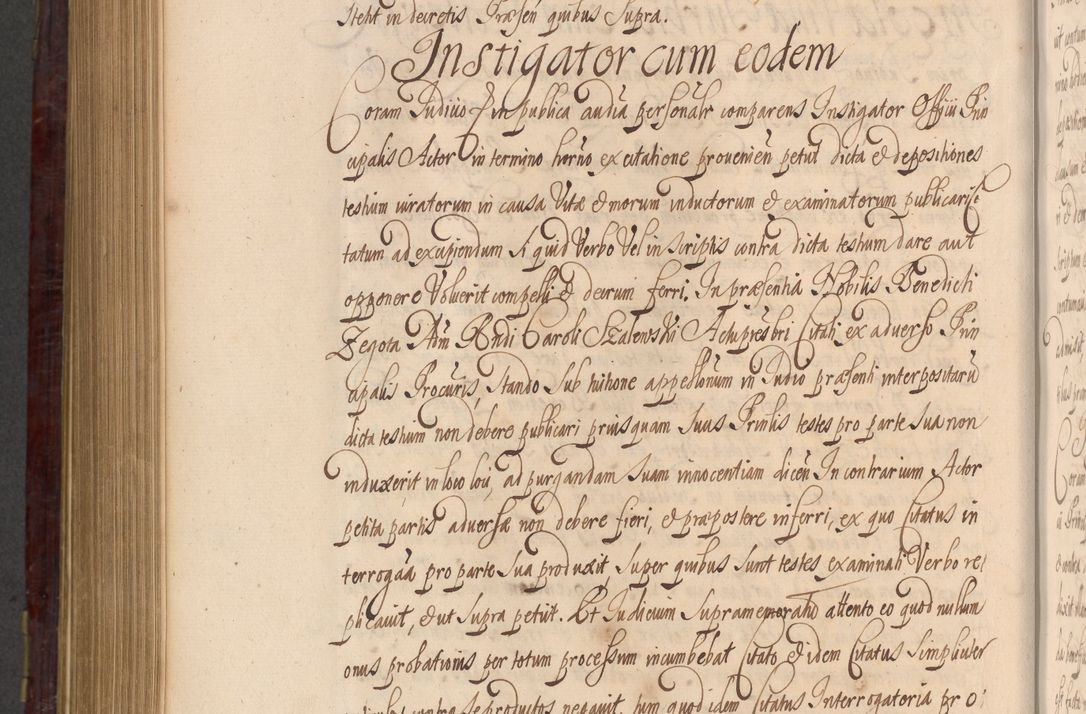 steht in decretis Præsen quibus supra.
Instigator cum eodem
Coram Judicio Jure publica audia personalr comparens Instigator Officii Prin
cipalis Actor in termino herno ex citatione provenien petiit dicta et depositiones
testium iuratorum in causa Vitæ et morum inductorum et examinatorum publicari Ci
tatum ad excipiendum si quid Verbo Vel in scriptis contra dicta testium dare aut
opponere Voluerit compelli et decrum ferri. In præsentia Nobilis Benedicti
Zegota Adm Rndi Caroli Szalewski Achipresbri Citati ex adverso Prin
cipalis Procuris, stando sub tuitione appellonum in Judio præsenti interpositaru
dicta testium non debere publicari priusquam suus Prinlis testes pro parte sua non
induxerit in loco loci, ad purgandam suam innocentiam dicen In contrarium Actor
petita partis adversæ non debere fieri, et præpostere inferri, ex quo Citatus in
terrogaa pro parte sua produxit, super quibus sunt testes examinati Verbo re
plicavit, et ut supra petiit. Et Judicium supramemoratu attento eo quod nullum
onus probationis per totum processum incumbebat Citato et idem Citatus simpliciter
contra se productos negavit, tum quod idem Citatus Interrogatoria pro